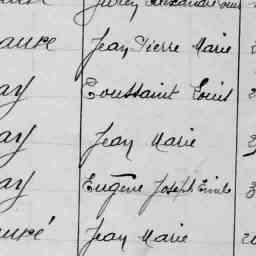 aure Jean Pierre Marie
ay Toussaint Louis
ay Jean Marie
ay Eugène Joseph Emile
auré Jean Marie